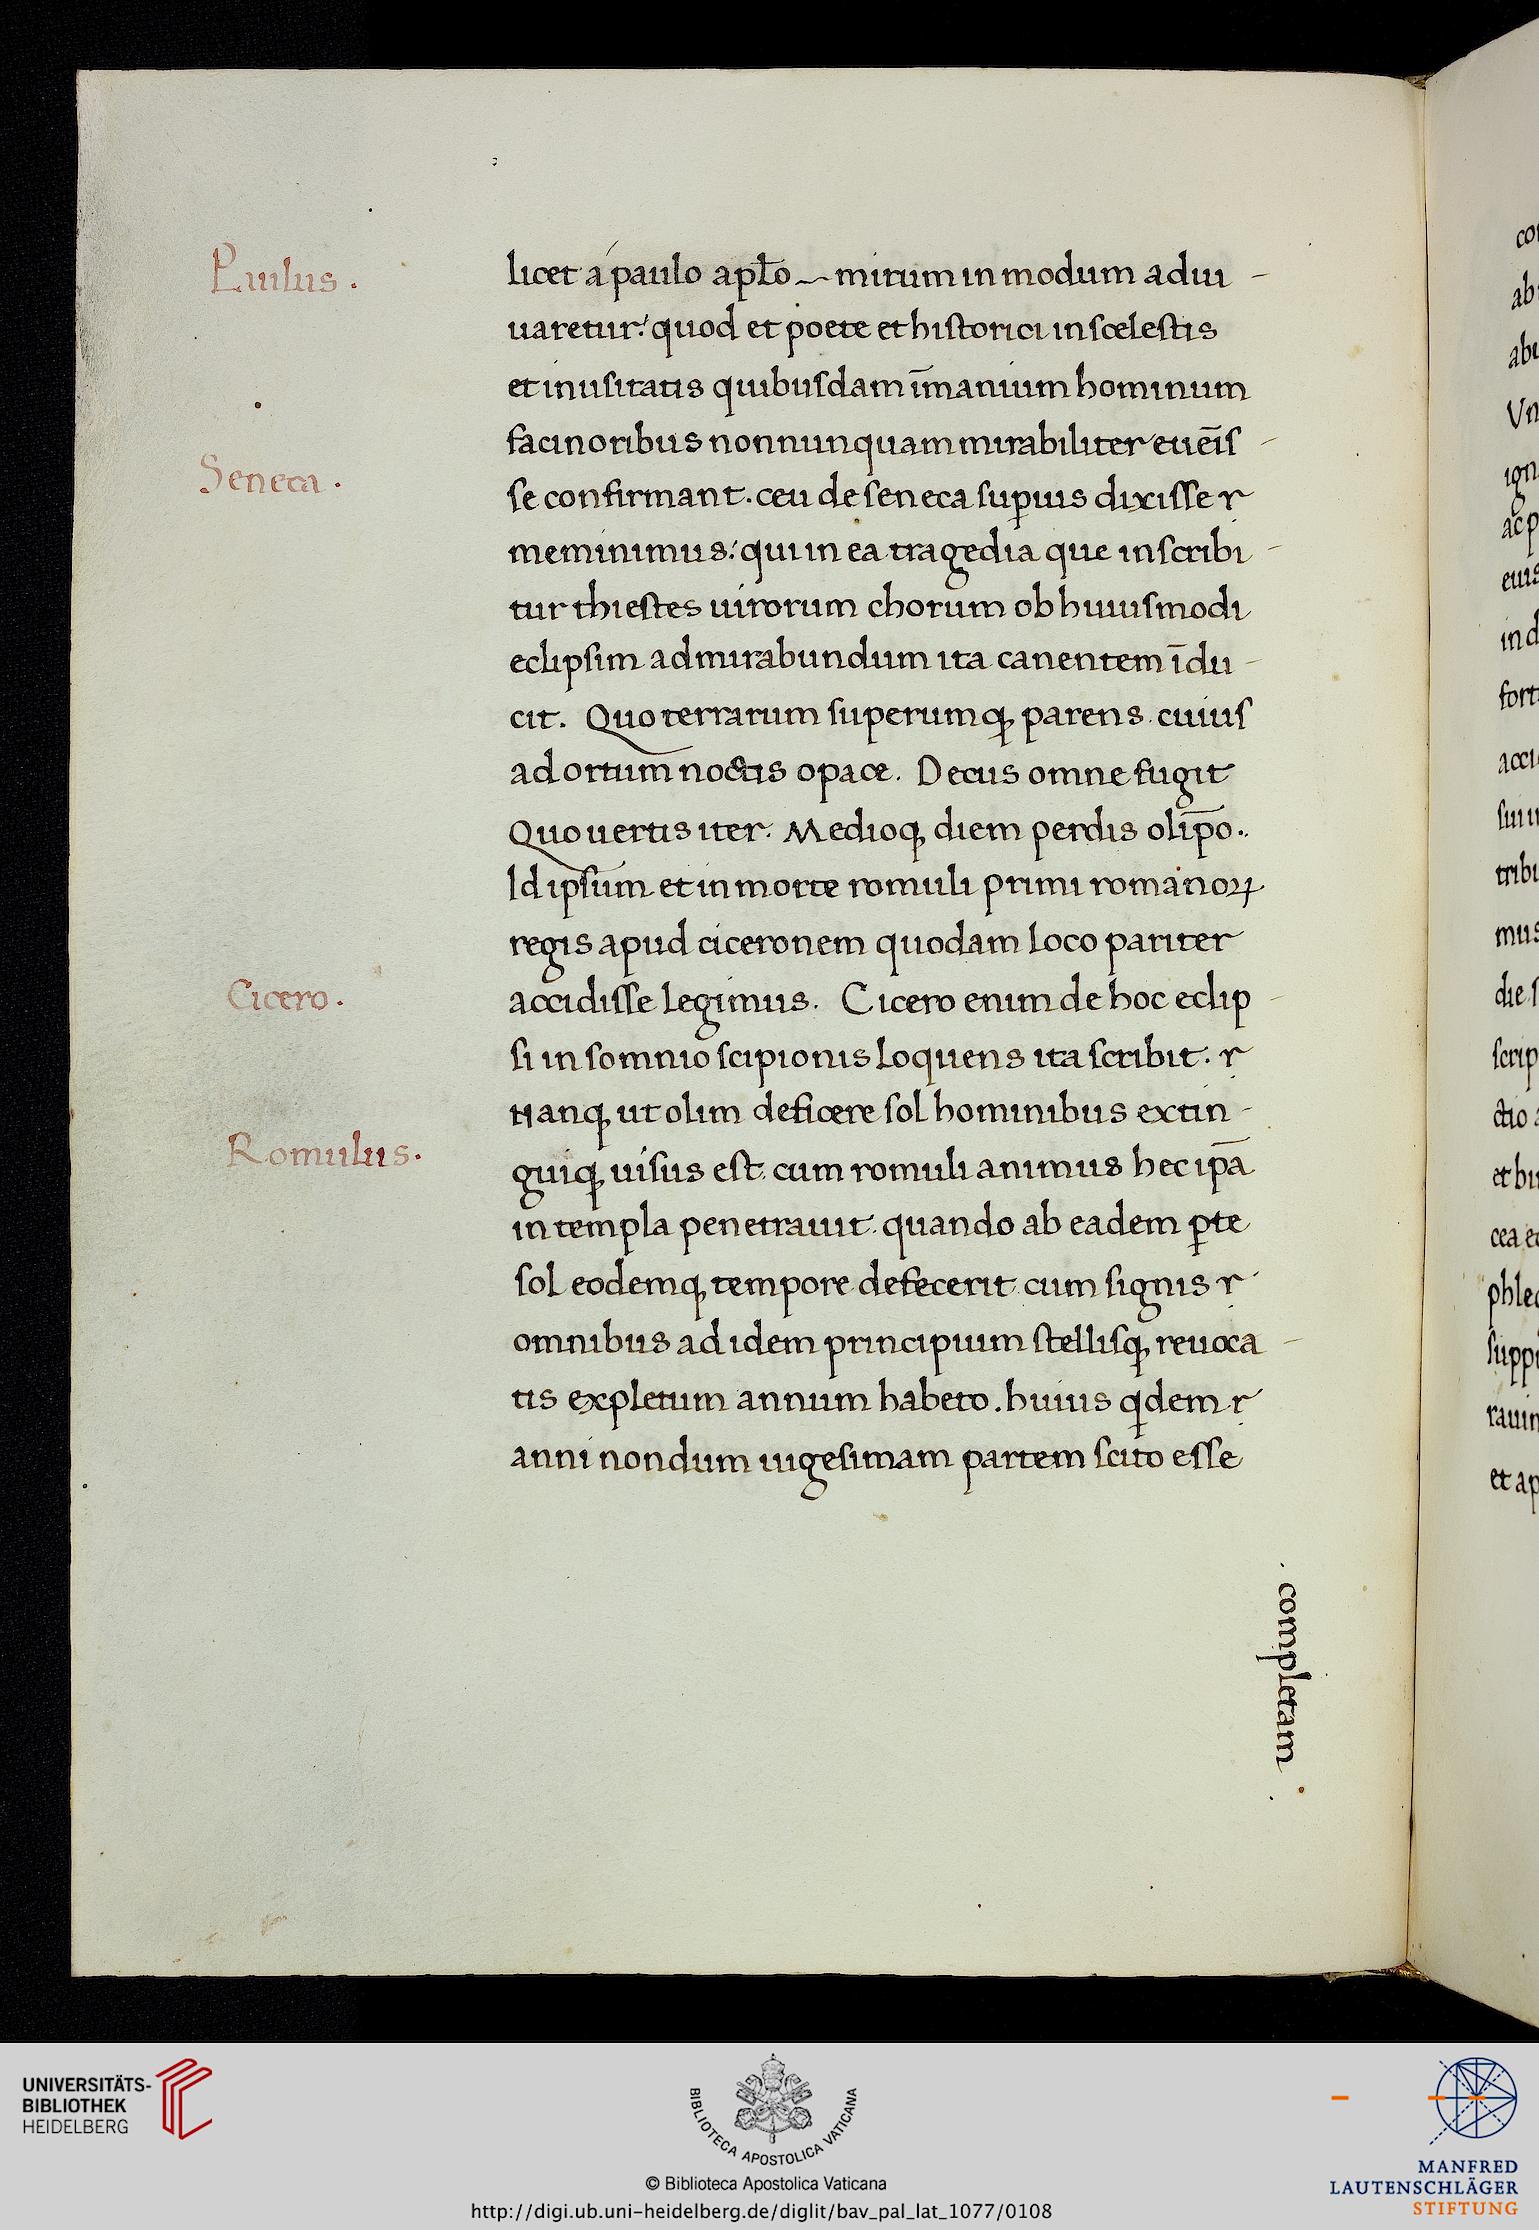 Paulus.
licet a paulo apƚo mirum in modum adiu-
uaretur: quod et poete et historici in scelestis
et inusitatis quibusdam īmanium hominum
facinoribus nonnunquam mirabiliter euēis-
Seneca.
se confirmant. ceu de seneca suꝑius dixisse
meminimus: qui in ea tragedia que inscribi-
tur thiestes uirorum chorum ob huiusmodi
eclipsim admirabundum ita canentem īdu-
cit. Quo terrarum superumqꝫ parens. cuius
ad ortum noctis opace. Decus omne fugit
Quo uertis iter. Medioqꝫ diem perdis olīpo.
Id ipsum et in morte romuli primi romanoꝝ
regis apud ciceronem quodam loco pariter
Cicero.
accidisse legimus. Cicero enim de hoc eclip-
si in somnio scipionis loquens ita scribit.
Nanqꝫ ut olim deficere sol hominibus extin-
Romulus.
guiqꝫ uisus est. cum romuli animus hec ip̄a
in templa penetrauit. quando ab eadem ꝑte
sol eodemqꝫ tempore defecerit cum signis
omnibus ad idem principium stellisqꝫ reuoca-
tis expletum annum habeto. huius qdem
anni nondum uigesimam partem scito esse
. completam .
co
ab
abu
Vn
ign
ac p
eius
in d
fort
acci
sui
tribu
mus
die s
scrip
ctio
et
cea e
phle
supp
rauin
et ap
UNIVERSITÄTS-
BIBLIOTHEK
HEIDELBERG
BIBLIOTECA APOSTOLICA VATICANA
© Biblioteca Apostolica Vaticana
http://digi.ub.uni-heidelberg.de/diglit/bav_pal_lat_1077/0108
MANFRED
LAUTENSCHLÄGER
STIFTUNG